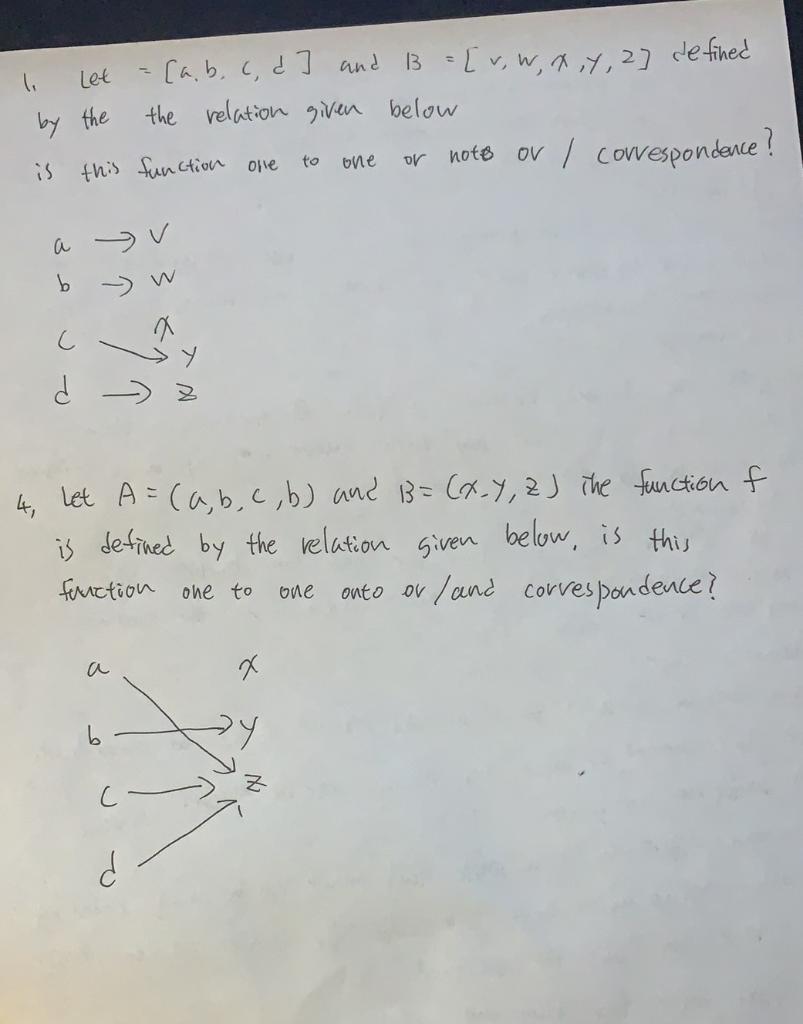 1. Let = [a, b, c, d] and B = [v, w, x, y, z] defined
by the the relation given below
is this function one to one or noto or / correspondence?
a → v
b → w
c x
→ y
d → z
4, Let A = (a, b, c, b) and B = (x, y, z) The function f
is defined by the relation given below, is this
function one to one onto or /and correspondence?
a x
b → y
c → z
d